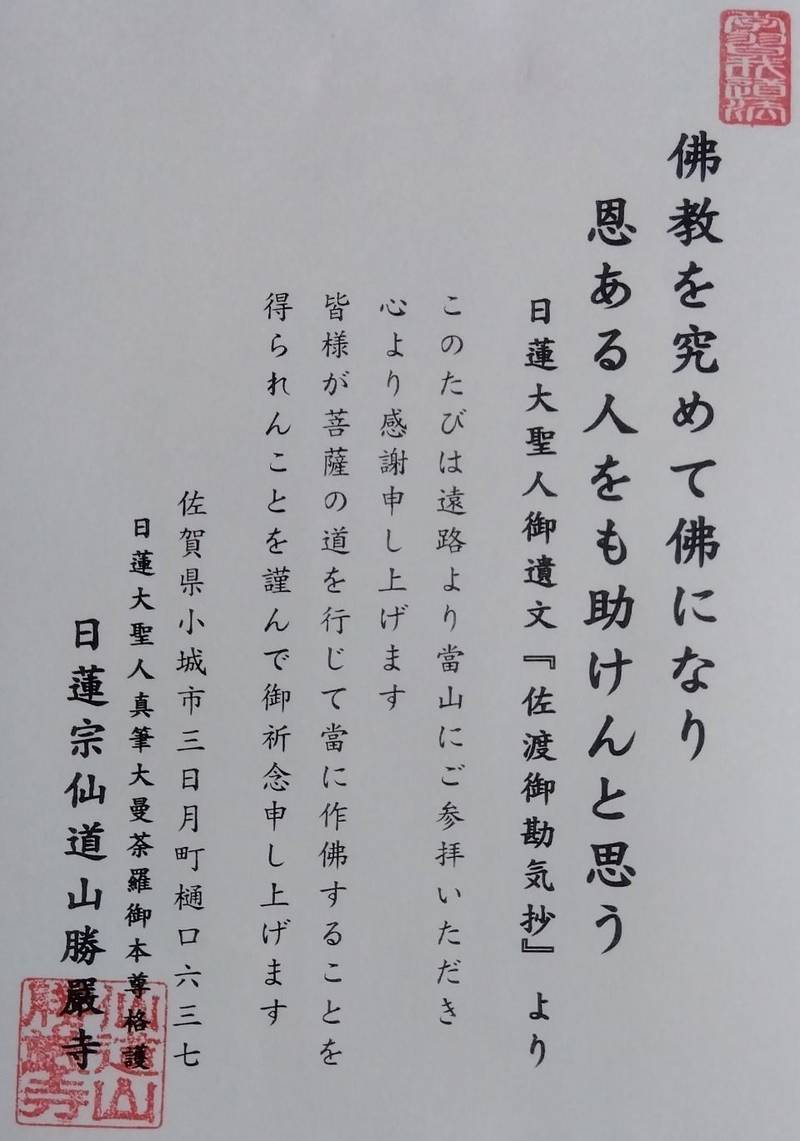 佛教を究めて佛になり
恩ある人をも助けんと思う
日蓮大聖人御遺文『佐渡御勘気抄』より
このたびは遠路より當山にご参拝いただき
心より感謝申し上げます
皆様が菩薩の道を行じて當に作佛することを
得られんことを謹んで御祈念申し上げます
佐賀県小城市三日月町樋口六三七
日蓮大聖人真筆大曼荼羅御本尊格護
日蓮宗仙道山勝嚴寺
仙道山
勝嚴寺